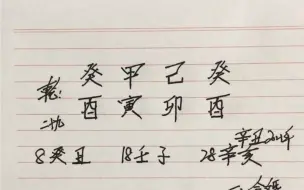 乾: 癸 甲 己 癸
酉 寅 卯 酉
8癸丑 18壬子 28辛亥
辛丑2021年